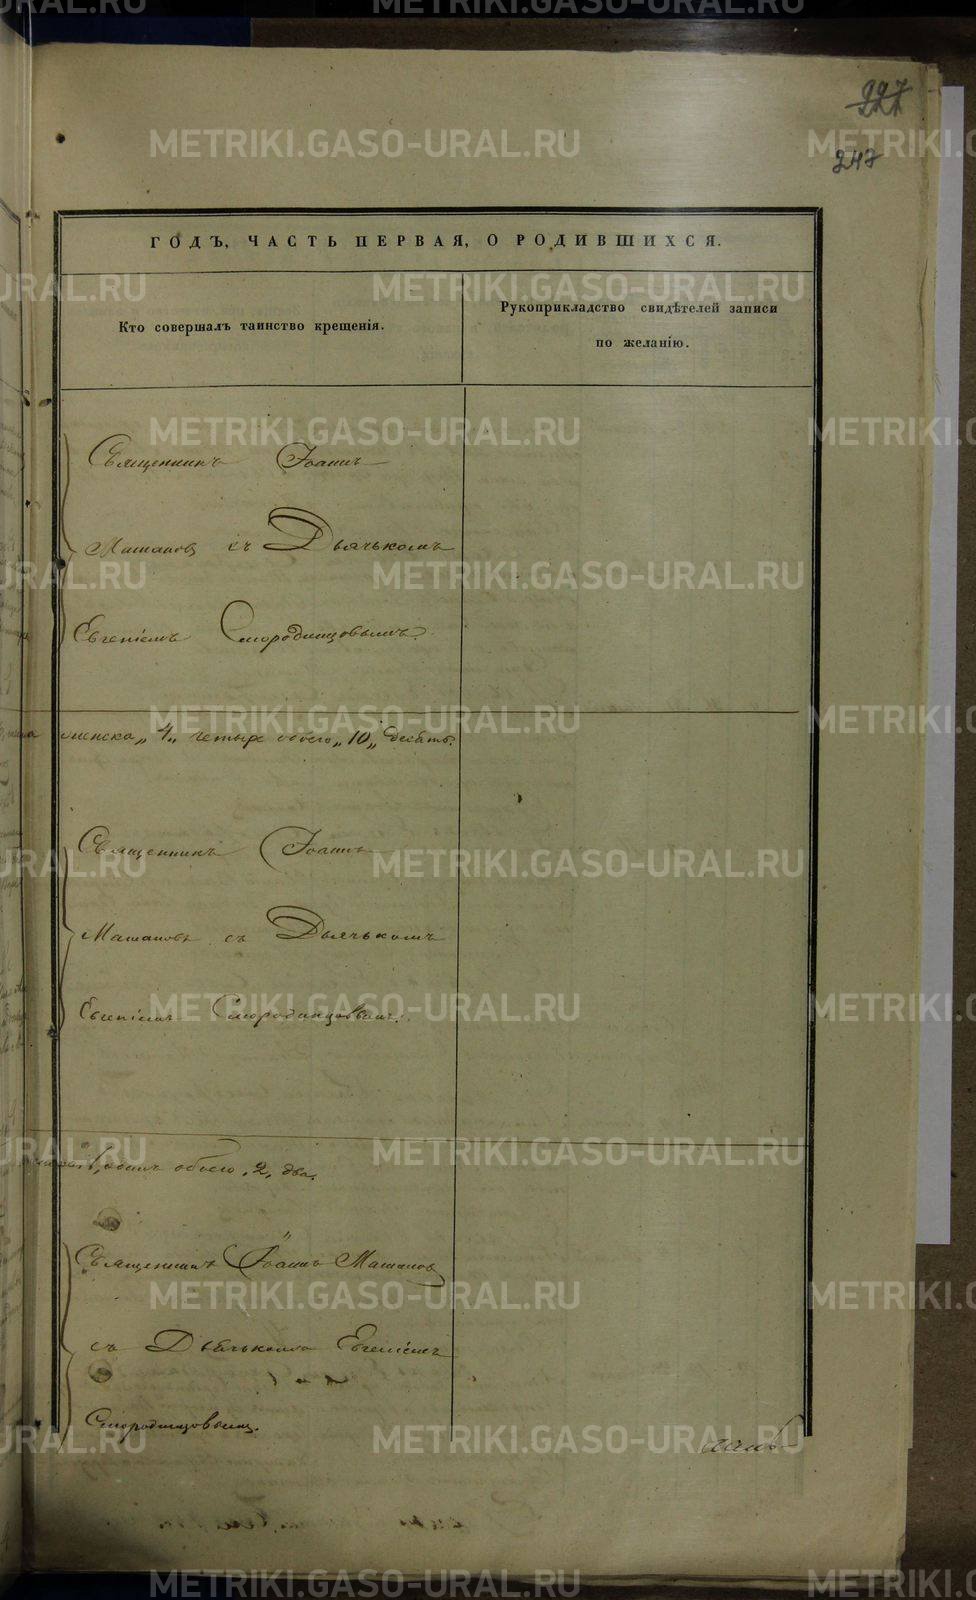 227
247
ГОДЪ, ЧАСТЬ ПЕРВАЯ, О РОДИВШИХСЯ.
Кто совершалъ таинство крещенія.
Рукоприкладство свидѣтелей записи
по желанію.
Священникъ Іоаннъ
Машановъ съ Дьячькомъ
Евгеніемъ Смородинцовымъ.
женска „4„ четыре обоего „10„ десять.
Священникъ Іоаннъ
Машановъ съ Дьячькомъ
Евгеніемъ Смородинцовымъ.
одинъ обоего „2„ два.
Священникъ Іоаннъ Машановъ
съ Дьячькомъ Евгеніемъ
Смородинцовымъ.
METRIKI.GASO-URAL.RU